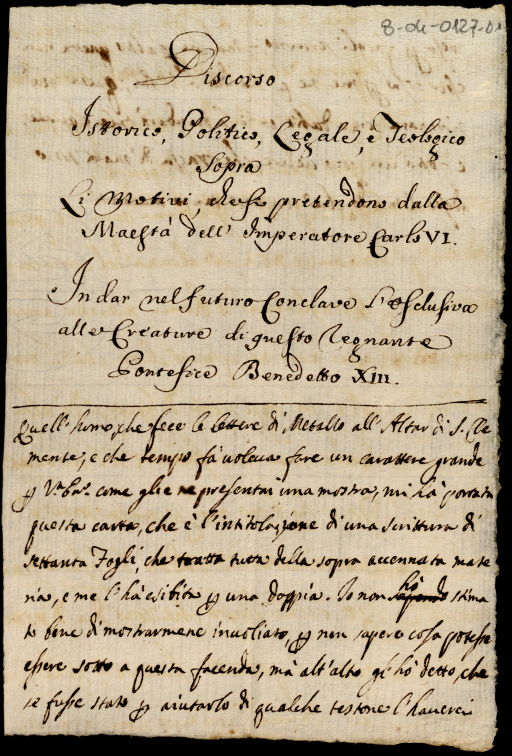 8-04-0127-01
Discorso
Istorico, Politico, Legale, e Teologico
Sopra
Li Motivi, che si pretendono dalla
Maestà dell' Imperatore Carlo VI.
In dar nel futuro Conclave l'esclusiva
alle Creature di questo regnante
Pontefice Benedetto XIII.
Quell' huomo, che fece le lettere di Metallo all' Altar di S. Cle
mente, e che tempo fà voleva fare un carattere grande
come glie ne presentai una mostra, mi hà portata
questa carta, che è l'intitolazione di una scrittura di
settanta Fogli, che tratta tutta della sopra accennata mate
ria, e me l'hà esibita p una doppia. Io non sapendo hò stima
to bene di mostrarmene invogliato, p non sapere cosa potesse
essere sotto a questa facenda, mà all' alto gl' hò detto, che
se fusse stato p aiutarlo di qualche testone l'haverei